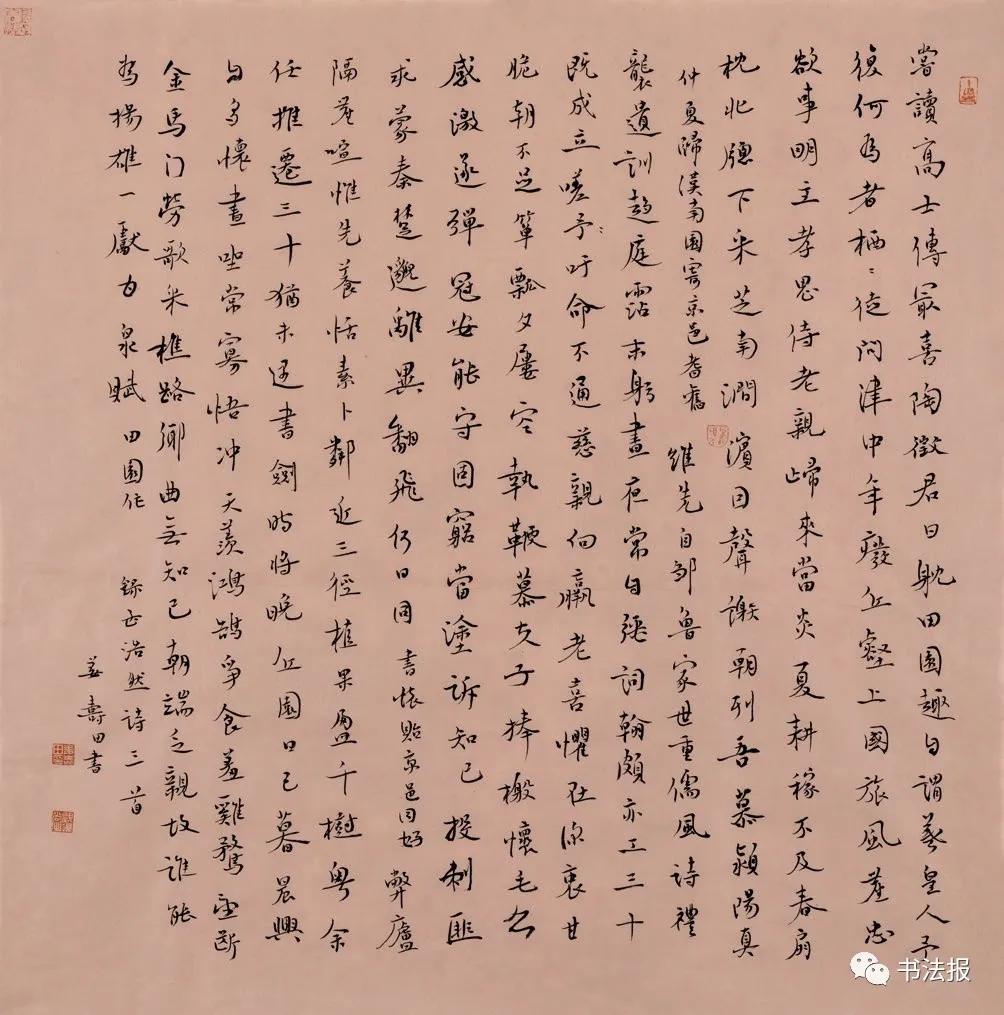 嘗讀高士傳最喜陶徵君日耽田園趣自謂羲皇人予
復何為者栖〻徒問津中年廢丘壑上國旅風塵忠
欲事明主孝思侍老親歸來當炎夏耕稼不及春扇
枕北牕下采芝南澗濱因聲謝朝列吾慕潁陽真
仲夏歸漢南園寄京邑耆舊 維先自鄒魯家世重儒風詩禮
襲遺訓趨庭霑末躬晝夜常自強詞翰頗亦工三十
既成立嗟予吁命不通慈親向羸老喜懼在深衷甘
脆朝不足簞瓢夕屢空執鞭慕夫子捧檄懷毛公
感激遂彈冠安能守固窮當塗訴知己投刺匪
求蒙秦楚邈離異翻飛何日同 書懷貽京邑同好 弊廬
隔塵喧惟先養恬素卜鄰近三徑植果盈千樹粵余
任推遷三十猶未遇書劍時將晚丘園日已暮晨興
自多懷晝坐常寡悟沖天羨鴻鵠爭食羞雞鶩望斷
金馬门勞歌采樵路鄉曲無知己朝端乏親故誰能
為揚雄一獻甘泉賦 田園作 錄孟浩然詩三首
姜壽田書
书法报